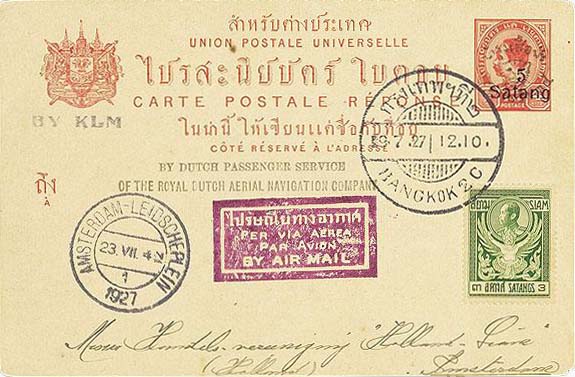 สำหรับต่างประเทศ
UNION POSTALE UNIVERSELLE
ไปรสะนียบัตร์ ใบตอบ
CARTE POSTALE RÉPONSE
5
Satang
BY KLM
ในน่านี้ ให้เขียนแต่ชื่อกับที่อยู่
CÔTÉ RÉSERVÉ À L'ADRESSE
BY DUTCH PASSENGER SERVICE
OF THE ROYAL DUTCH AERIAL NAVIGATION COMPANY
ถึง
À
กรุงเทพฯที่๒
7.27 12.10.
BANGKOK 2 C
AMSTERDAM-LEIDSCHEPLEIN
23.VII. 4
1
1927
ไปรษณีย์ทางอากาศ
PER VIA AEREA
PAR AVION
BY AIR MAIL
สยาม SIAM
๓ สตางค์ SATANGS 3
Handels-vereeniging "Holland-Siam"
(Holland) Amsterdam